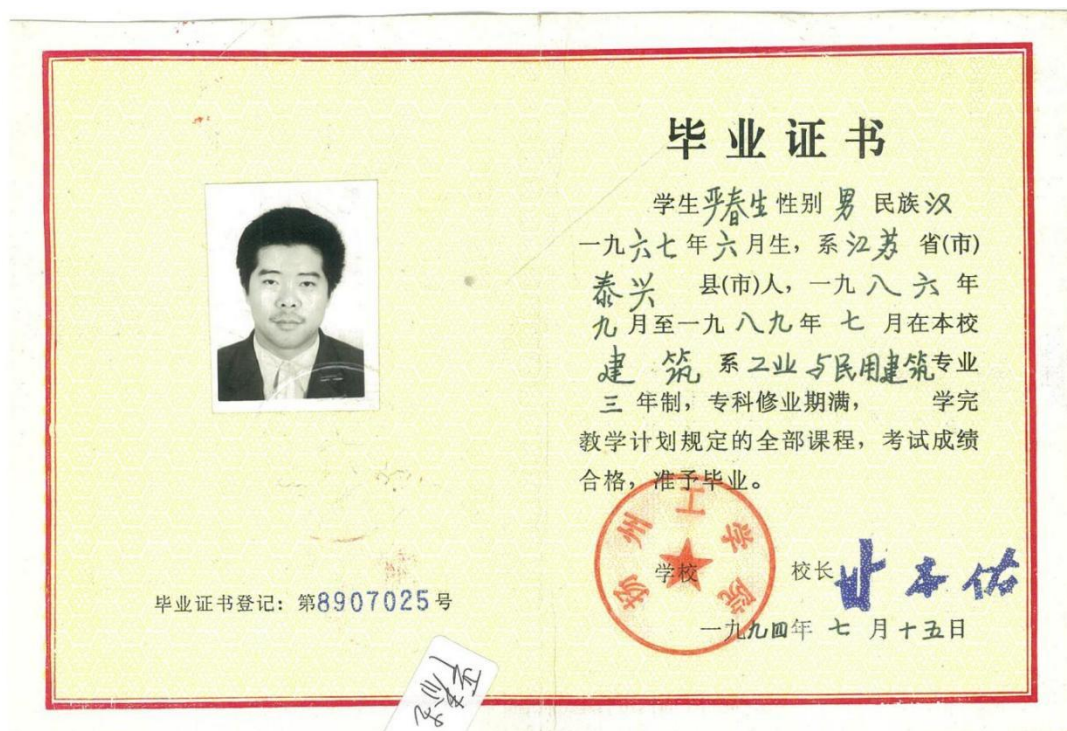 毕业证书
学生严春生性别男民族汉
一九六七年六月生，系江苏省(市)
泰兴县(市)人，一九八六年
九月至一九八九年七月在本校
建筑系工业与民用建筑专业
三年制，专科修业期满，学完
教学计划规定的全部课程，考试成绩
合格，准予毕业。
扬州工学院
学校 校长 甘本佑
一九九四年七月十五日
毕业证书登记：第8907025号